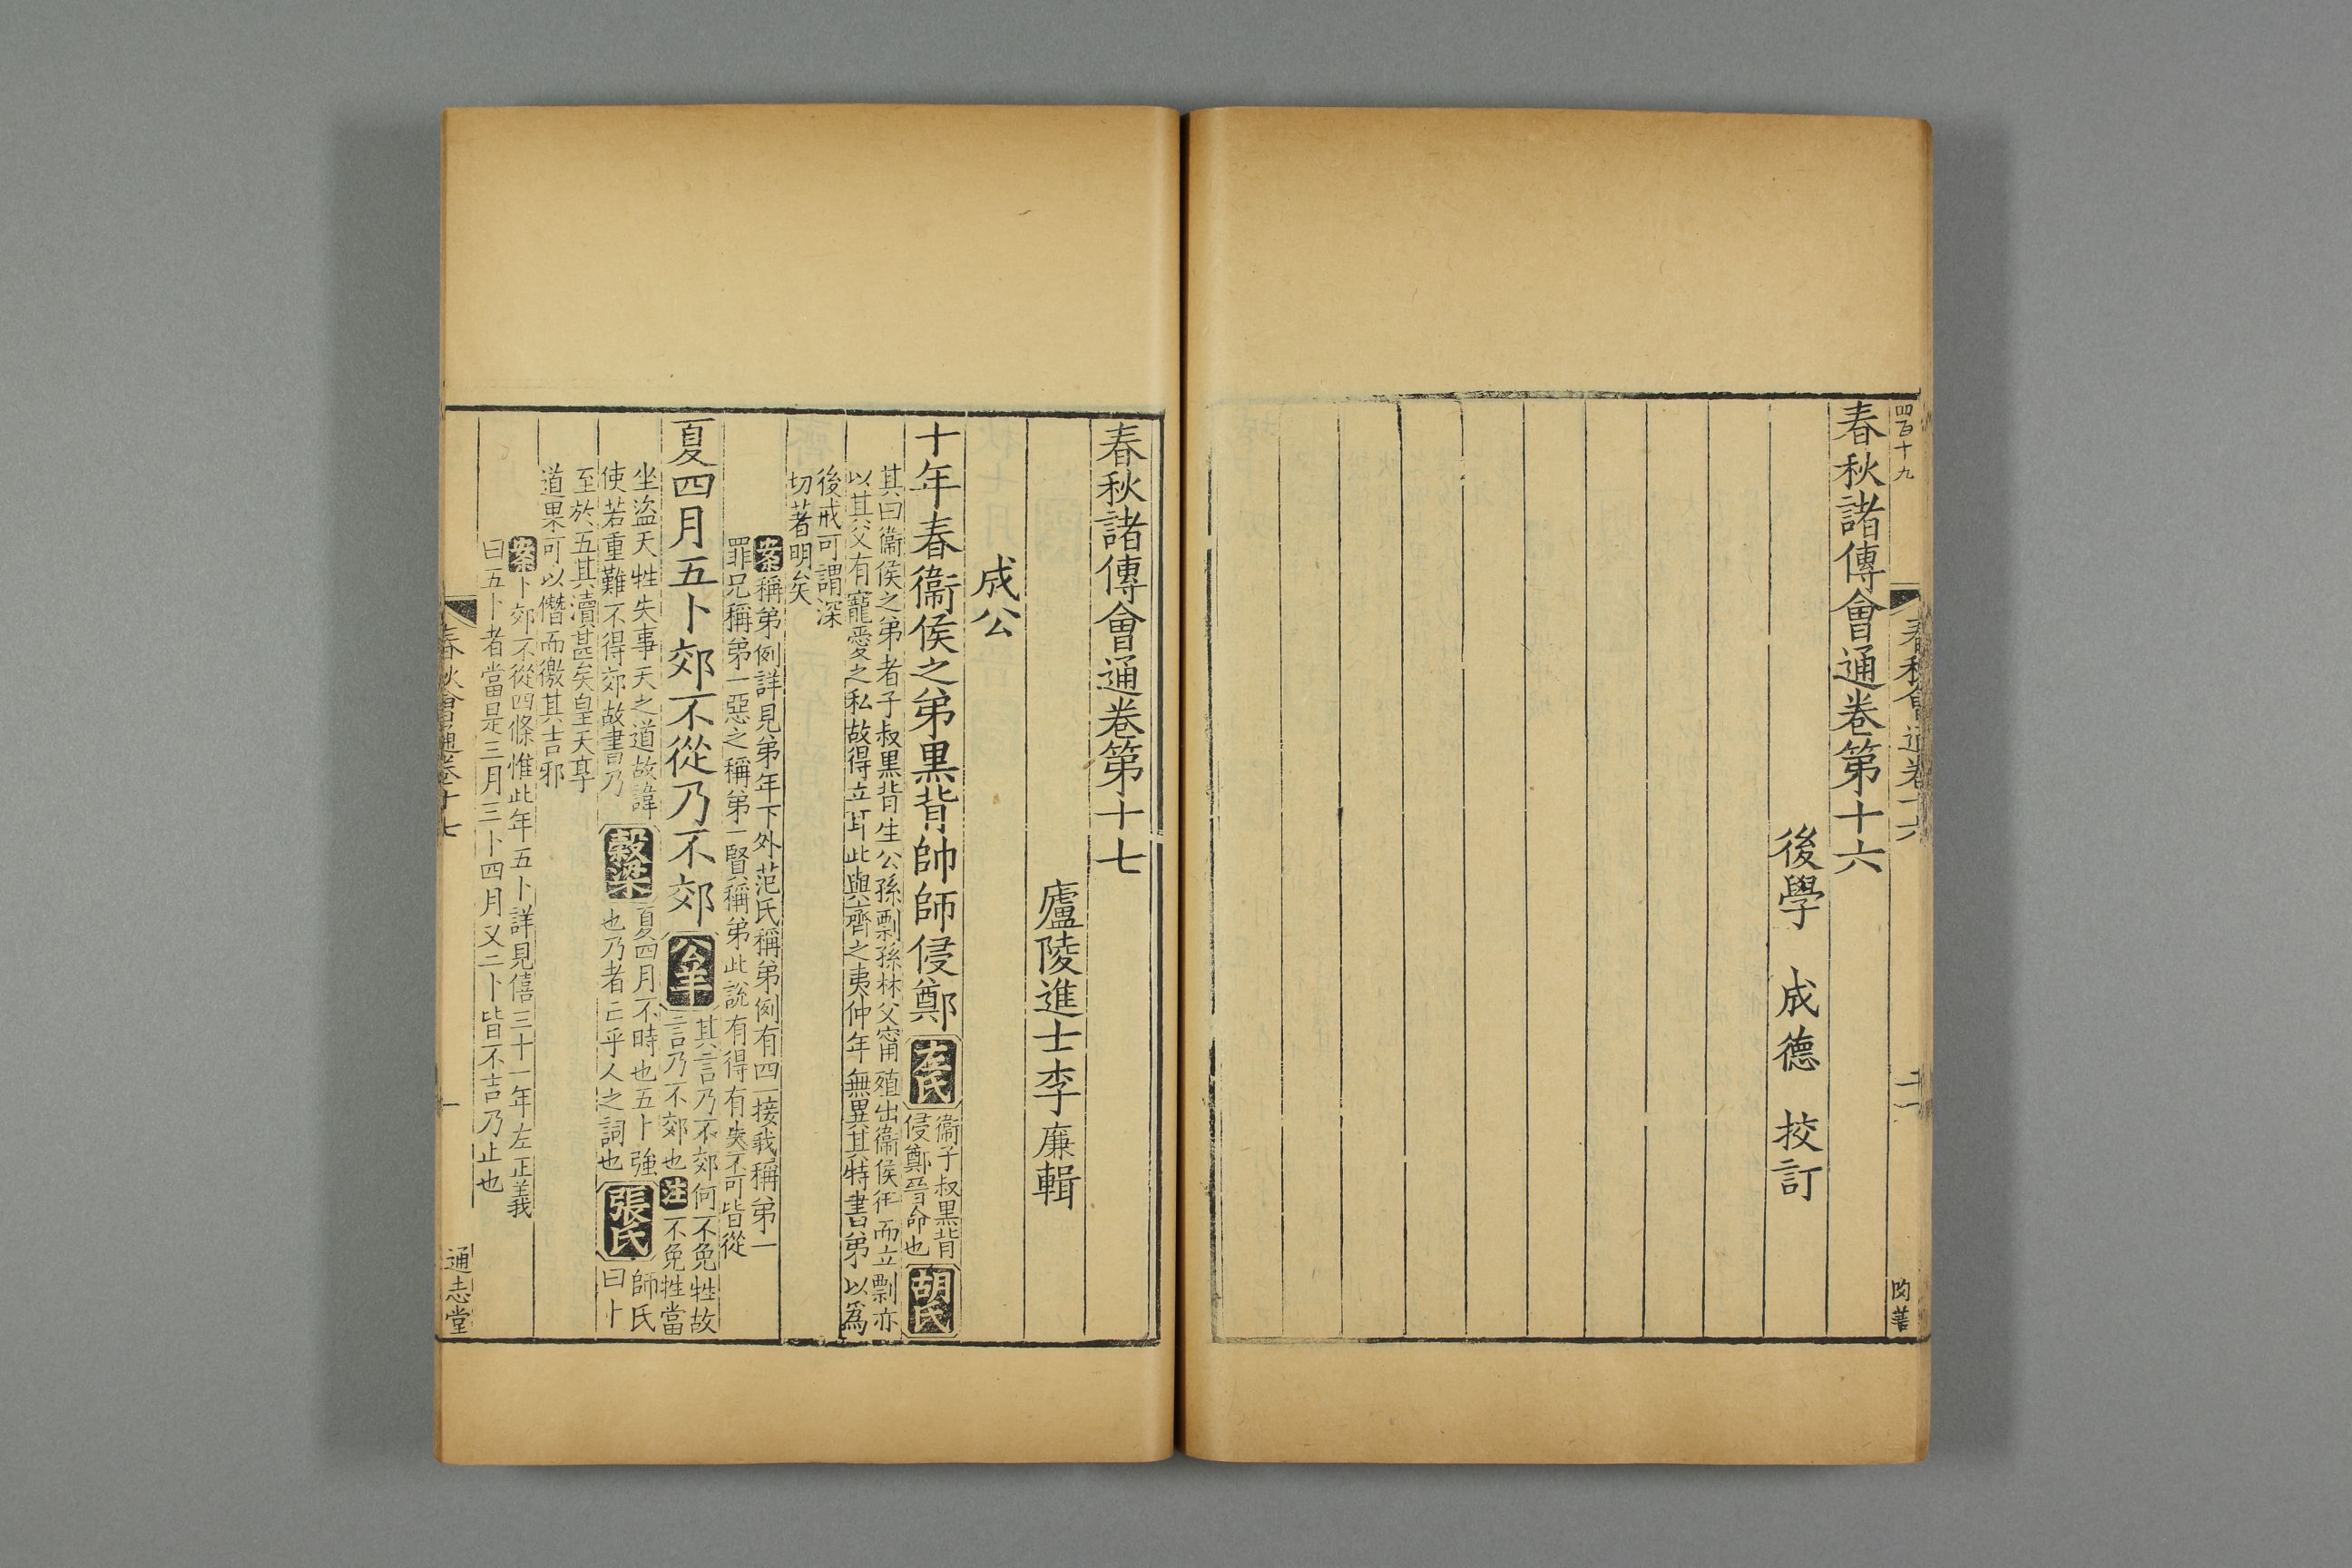 四百十九
春秋會通卷十六
二
春秋諸傳會通卷第十六
後學 成德 挍訂
春秋諸傳會通卷第十七
廬陵進士李廉輯
成公
十年春衞侯之弟黑背帥師侵鄭
左氏
衞子叔黑背
侵鄭晉命也
胡氏
其曰衞侯之弟者子叔黑背生公孫剽孫林父甯殖出衞侯衎而立剽亦
以其父有寵愛之私故得立耳此與齊之夷仲年無異其特書弟以爲
後戒可謂深
切著明矣
案稱弟例詳見弟年下外范氏稱弟例有四一接我稱弟一
罪兄稱弟一惡之稱弟一賢稱弟此說有得有失不可皆從
夏四月五卜郊不從乃不郊
公羊
其言乃不郊何不免牲故
言乃不郊也注不免牲當
坐盜天牲失事天之道故諱
使若重難不得郊故書乃
穀梁
夏四月不時也五卜強
也乃者亡乎人之詞也
張氏
師氏
曰卜
至於五其瀆甚矣皇天享
道果可以僭而徼其吉邪
案卜郊不從四條惟此年五卜詳見僖三十一年左正義
曰五卜者當是三月三卜四月又二卜皆不吉乃止也
春秋會通卷十七
一
通志堂